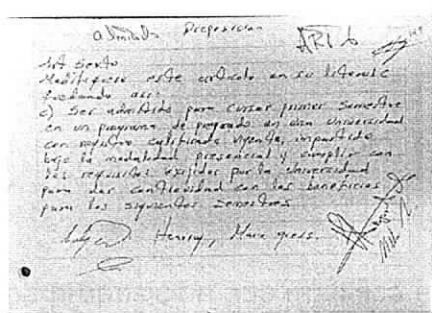 admitida Proposicion
ART 6
Art Sexto
Modifiquese este articulo en su literal C
quedando asi:
c) Ser admitido para cursar primer semestre
en un programa de pregrado en una Universidad
con registro calificado vigente, impartido
bajo la modalidad presencial y cumplir con
los requisitos exijidos por la Universidad
para dar continuidad con los beneficios
para los siguientes semestres
Henrry,